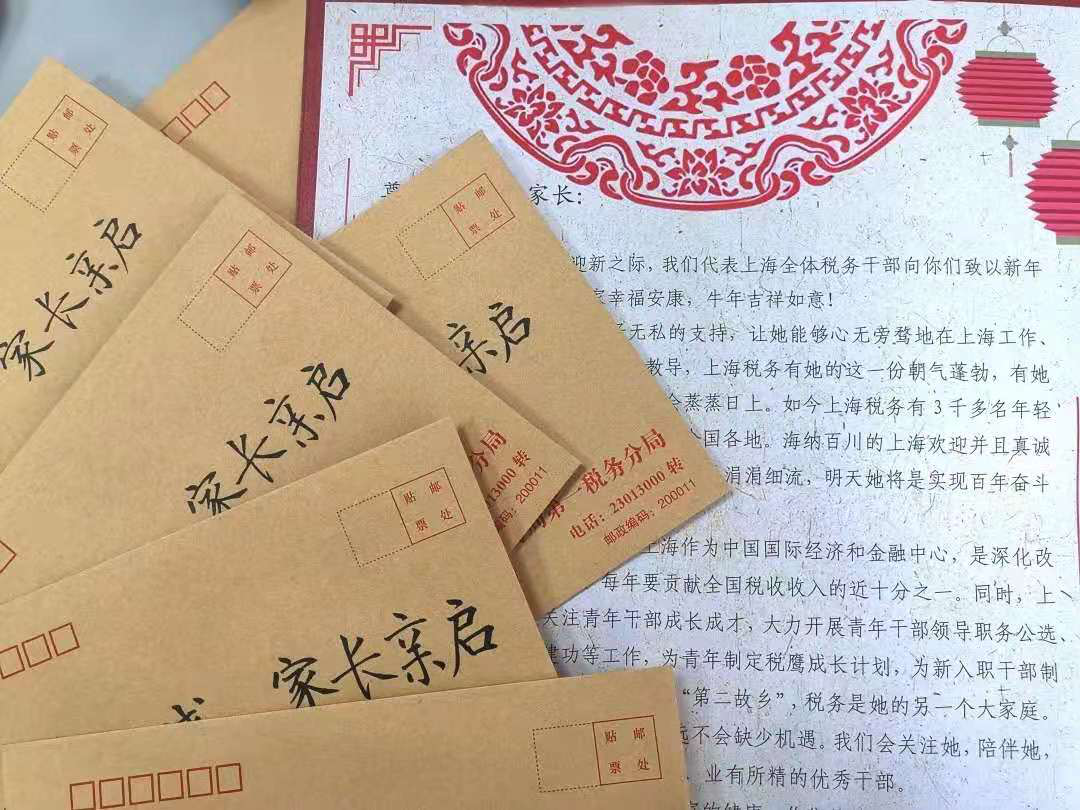 贴 邮
票 处
家长亲启
贴 邮
票 处
家长亲启
贴 邮
票 处
亲启
分局
23013000 转
编码：200011
第一税务分局
电话：23013000 转
邮政编码：200011
贴 邮
票 处
家长亲启
贴 邮
票 处
尊
家长：
迎新之际，我们代表上海全体税务干部向你们致以新年
幸福安康，牛年吉祥如意！
无私的支持，让她能够心无旁骛地在上海工作、
教导，上海税务有她的这一份朝气蓬勃，有她
蒸蒸日上。如今上海税务有 3 千多名年轻
全国各地。海纳百川的上海欢迎并且真诚
涓涓细流，明天她将是实现百年奋斗
上海作为中国国际经济和金融中心，是深化改
每年要贡献全国税收收入的近十分之一。同时，上
关注青年干部成长成才，大力开展青年干部领导职务公选、
建功等工作，为青年制定税鹰成长计划，为新入职干部制
“第二故乡”，税务是她的另一个大家庭。
远不会缺少机遇。我们会关注她，陪伴她，
、业有所精的优秀干部。